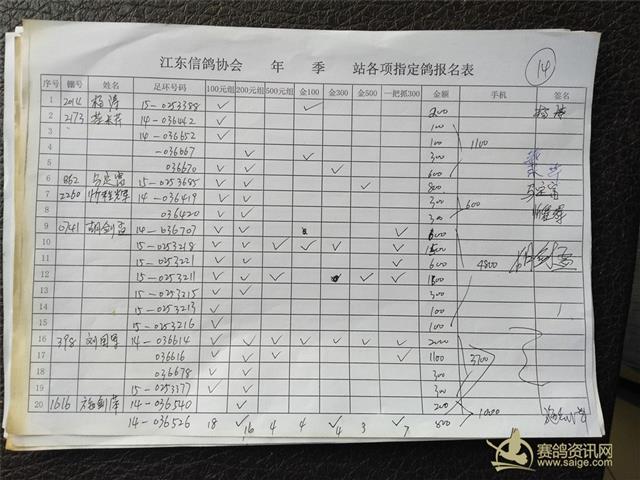 江东信鸽协会 年 季 站各项指定鸽报名表
14
序号 棚号 姓名 足环号码 100元组 200元组 500元组 金100 金300 金500 一把抓300 金额 手机 签名
1 2014 杨涛 15-0253388 ✓ ✓ 200
2 2173 14-036442 ✓ 100
3 14-036652 ✓ 100 1100
4 -036667 ✓ ✓ 300
5 036670 ✓ ✓ 600
6 862 15-0253685 ✓ ✓ ✓ 800
7 2260 14-036419 ✓ ✓ 300 600
8 036420 ✓ ✓ 300
9 0741 胡剑孟 14-036707 ✓ ✓ ✓
10 15-0253218 ✓ ✓ ✓ ✓ ✓ ✓
11 15-0253221 ✓ ✓ ✓ 600 4800
12 15-0253211 ✓ ✓ ✓ ✓ ✓
13 15-0253215 ✓ ✓ 300
14 15-0253213 ✓ 100
15 15-0253216 ✓ 100
16 398 14-036614 ✓ ✓ ✓ ✓ ✓ ✓ ✓ 2000
17 036616 ✓ ✓ ✓ ✓ 1100 3700
18 036678 ✓ ✓ 300
19 15-0253377 ✓ ✓ 300
20 1616 14-036540 ✓ 200 1000
14-036526 18 ✓ 16 4 4 ✓ 4 3 ✓ 7 800
赛鸽资讯网
www.saige.com